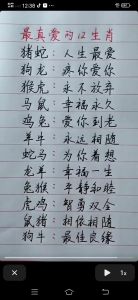 12:38
最真爱的12生肖
猪蛇：人生最爱
狗龙：疼你爱你
猴虎：永不放弃
马鼠：幸福永久
鸡兔：爱你到老
羊牛：永远相随
蛇马：为你着想
龙羊：幸福一生
兔猴：平静和睦
虎鸡：智勇双全
鼠猪：相依相随
狗牛：最佳良缘
1x